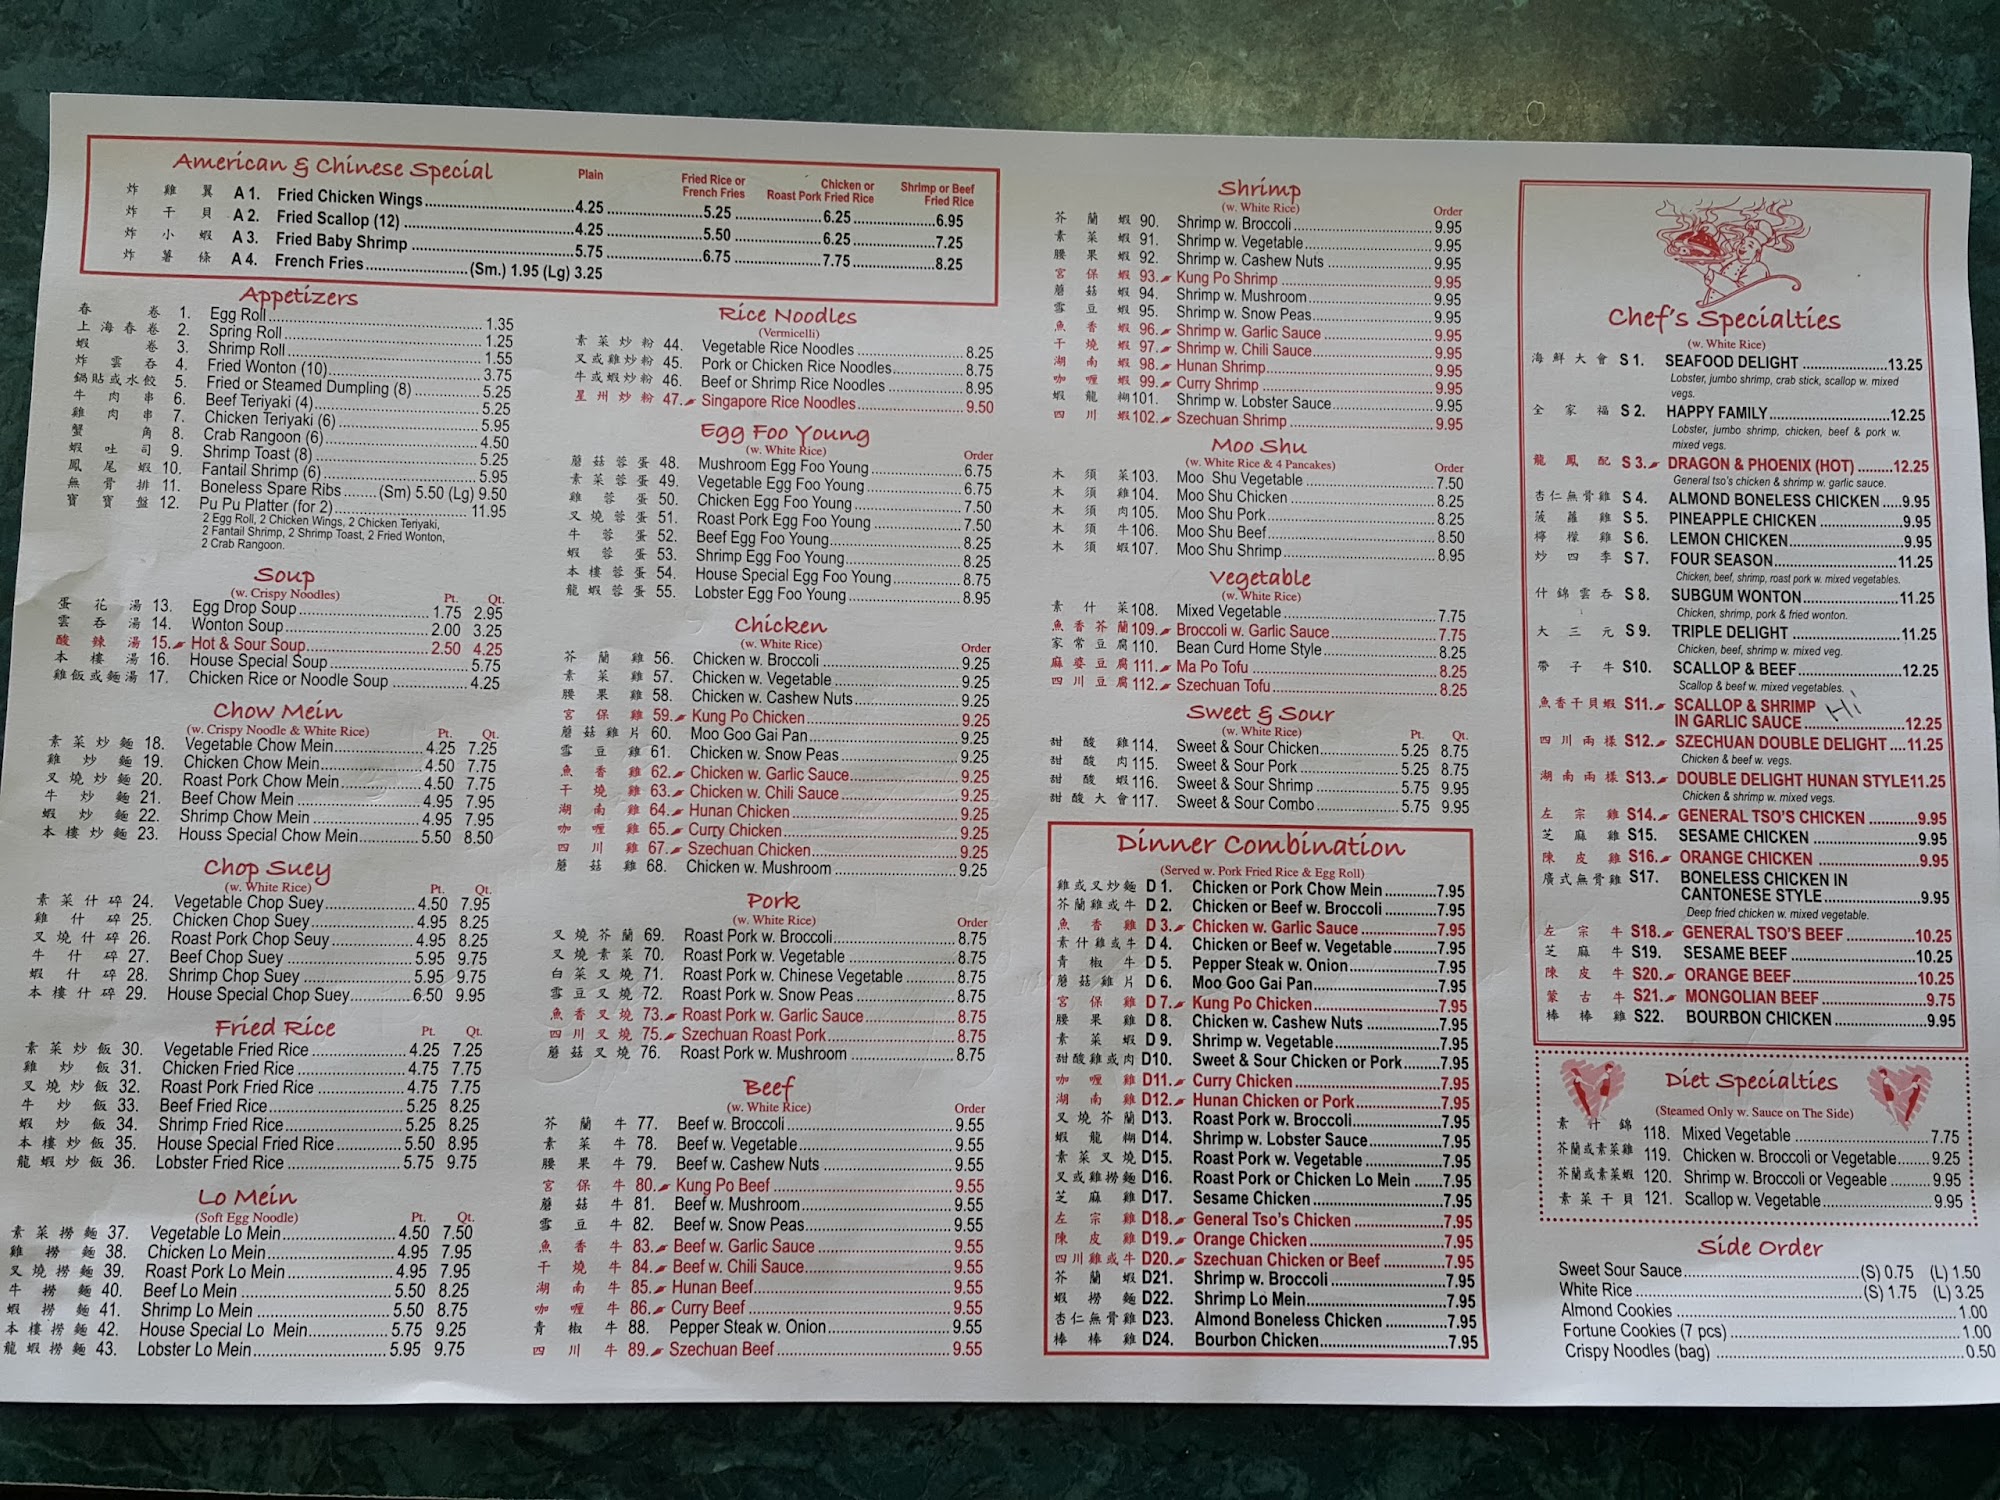 American & Chinese Special
Plain
Fried Rice or French Fries
Chicken or Roast Pork Fried Rice
Shrimp or Beef Fried Rice
炸 雞 翼 A 1. Fried Chicken Wings 4.25 5.25 6.25 6.95
炸 干 貝 A 2. Fried Scallop (12) 4.25 5.50 6.25 7.25
炸 小 蝦 A 3. Fried Baby Shrimp 5.75 6.75 7.75 8.25
炸 薯 條 A 4. French Fries (Sm.) 1.95 (Lg) 3.25
Appetizers
春 卷 1. Egg Roll 1.35
上海春卷 2. Spring Roll 1.25
蝦 卷 3. Shrimp Roll 1.55
炸 雲 吞 4. Fried Wonton (10) 3.75
鍋貼或水餃 5. Fried or Steamed Dumpling (8) 5.25
牛 肉 串 6. Beef Teriyaki (4) 5.25
雞 肉 串 7. Chicken Teriyaki (6) 5.95
蟹 角 8. Crab Rangoon (6) 4.50
蝦 吐 司 9. Shrimp Toast (8) 5.25
鳳 尾 蝦 10. Fantail Shrimp (6) 5.95
無 骨 排 11. Boneless Spare Ribs (Sm) 5.50 (Lg) 9.50
寶 寶 盤 12. Pu Pu Platter (for 2) 11.95
2 Egg Roll, 2 Chicken Wings, 2 Chicken Teriyaki,
2 Fantail Shrimp, 2 Shrimp Toast, 2 Fried Wonton,
2 Crab Rangoon.
Soup
(w. Crispy Noodles) Pt. Qt.
蛋 花 湯 13. Egg Drop Soup 1.75 2.95
雲 吞 湯 14. Wonton Soup 2.00 3.25
酸 辣 湯 15. Hot & Sour Soup 2.50 4.25
本 樓 湯 16. House Special Soup 5.75
雞飯或麵湯 17. Chicken Rice or Noodle Soup 4.25
Chow Mein
(w. Crispy Noodle & White Rice) Pt. Qt.
素菜炒麵 18. Vegetable Chow Mein 4.25 7.25
雞 炒 麵 19. Chicken Chow Mein 4.50 7.75
叉燒炒麵 20. Roast Pork Chow Mein 4.50 7.75
牛 炒 麵 21. Beef Chow Mein 4.95 7.95
蝦 炒 麵 22. Shrimp Chow Mein 4.95 7.95
本樓炒麵 23. Houss Special Chow Mein 5.50 8.50
Chop Suey
(w. White Rice) Pt. Qt.
素菜什碎 24. Vegetable Chop Suey 4.50 7.95
雞 什 碎 25. Chicken Chop Suey 4.95 8.25
叉燒什碎 26. Roast Pork Chop Seuy 4.95 8.25
牛 什 碎 27. Beef Chop Suey 5.95 9.75
蝦 什 碎 28. Shrimp Chop Suey 5.95 9.75
本樓什碎 29. House Special Chop Suey 6.50 9.95
Fried Rice Pt. Qt.
素菜炒飯 30. Vegetable Fried Rice 4.25 7.25
雞 炒 飯 31. Chicken Fried Rice 4.75 7.75
叉燒炒飯 32. Roast Pork Fried Rice 4.75 7.75
牛 炒 飯 33. Beef Fried Rice 5.25 8.25
蝦 炒 飯 34. Shrimp Fried Rice 5.25 8.25
本樓炒飯 35. House Special Fried Rice 5.50 8.95
龍蝦炒飯 36. Lobster Fried Rice 5.75 9.75
Lo Mein
(Soft Egg Noodle) Pt. Qt.
素菜撈麵 37. Vegetable Lo Mein 4.50 7.50
雞 撈 麵 38. Chicken Lo Mein 4.95 7.95
叉燒撈麵 39. Roast Pork Lo Mein 4.95 7.95
牛 撈 麵 40. Beef Lo Mein 5.50 8.25
蝦 撈 麵 41. Shrimp Lo Mein 5.50 8.75
本樓撈麵 42. House Special Lo Mein 5.75 9.25
龍蝦撈麵 43. Lobster Lo Mein 5.95 9.75
Rice Noodles
(Vermicelli)
素菜炒粉 44. Vegetable Rice Noodles 8.25
叉或雞炒粉 45. Pork or Chicken Rice Noodles 8.75
牛或蝦炒粉 46. Beef or Shrimp Rice Noodles 8.95
星州炒粉 47. Singapore Rice Noodles 9.50
Egg Foo Young
(w. White Rice) Order
蘑菇蓉蛋 48. Mushroom Egg Foo Young 6.75
素菜蓉蛋 49. Vegetable Egg Foo Young 6.75
雞 蓉 蛋 50. Chicken Egg Foo Young 7.50
叉燒蓉蛋 51. Roast Pork Egg Foo Young 7.50
牛 蓉 蛋 52. Beef Egg Foo Young 8.25
蝦 蓉 蛋 53. Shrimp Egg Foo Young 8.25
本樓蓉蛋 54. House Special Egg Foo Young 8.75
龍蝦蓉蛋 55. Lobster Egg Foo Young 8.95
Chicken
(w. White Rice) Order
芥 蘭 雞 56. Chicken w. Broccoli 9.25
素 菜 雞 57. Chicken w. Vegetable 9.25
腰 果 雞 58. Chicken w. Cashew Nuts 9.25
宮 保 雞 59. Kung Po Chicken 9.25
蘑菇雞片 60. Moo Goo Gai Pan 9.25
雪 豆 雞 61. Chicken w. Snow Peas 9.25
魚 香 雞 62. Chicken w. Garlic Sauce 9.25
干 燒 雞 63. Chicken w. Chili Sauce 9.25
湖 南 雞 64. Hunan Chicken 9.25
咖 喱 雞 65. Curry Chicken 9.25
四 川 雞 67. Szechuan Chicken 9.25
蘑 菇 雞 68. Chicken w. Mushroom 9.25
Pork
(w. White Rice) Order
叉燒芥蘭 69. Roast Pork w. Broccoli 8.75
叉燒素菜 70. Roast Pork w. Vegetable 8.75
白菜叉燒 71. Roast Pork w. Chinese Vegetable 8.75
雪豆叉燒 72. Roast Pork w. Snow Peas 8.75
魚香叉燒 73. Roast Pork w. Garlic Sauce 8.75
四川叉燒 75. Szechuan Roast Pork 8.75
蘑菇叉燒 76. Roast Pork w. Mushroom 8.75
Beef
(w. White Rice) Order
芥 蘭 牛 77. Beef w. Broccoli 9.55
素 菜 牛 78. Beef w. Vegetable 9.55
腰 果 牛 79. Beef w. Cashew Nuts 9.55
宮 保 牛 80. Kung Po Beef 9.55
蘑 菇 牛 81. Beef w. Mushroom 9.55
雪 豆 牛 82. Beef w. Snow Peas 9.55
魚 香 牛 83. Beef w. Garlic Sauce 9.55
干 燒 牛 84. Beef w. Chili Sauce 9.55
湖 南 牛 85. Hunan Beef 9.55
咖 喱 牛 86. Curry Beef 9.55
青 椒 牛 88. Pepper Steak w. Onion 9.55
四 川 牛 89. Szechuan Beef 9.55
Shrimp
(w. White Rice) Order
芥 蘭 蝦 90. Shrimp w. Broccoli 9.95
素 菜 蝦 91. Shrimp w. Vegetable 9.95
腰 果 蝦 92. Shrimp w. Cashew Nuts 9.95
宮 保 蝦 93. Kung Po Shrimp 9.95
蘑 菇 蝦 94. Shrimp w. Mushroom 9.95
雪 豆 蝦 95. Shrimp w. Snow Peas 9.95
魚 香 蝦 96. Shrimp w. Garlic Sauce 9.95
干 燒 蝦 97. Shrimp w. Chili Sauce 9.95
湖 南 蝦 98. Hunan Shrimp 9.95
咖 喱 蝦 99. Curry Shrimp 9.95
蝦 龍 糊 101. Shrimp w. Lobster Sauce 9.95
四 川 蝦 102. Szechuan Shrimp 9.95
Moo Shu
(w. White Rice & 4 Pancakes) Order
木 須 菜 103. Moo Shu Vegetable 7.50
木 須 雞 104. Moo Shu Chicken 8.25
木 須 肉 105. Moo Shu Pork 8.25
木 須 牛 106. Moo Shu Beef 8.50
木 須 蝦 107. Moo Shu Shrimp 8.95
Vegetable
(w. White Rice)
素 什 菜 108. Mixed Vegetable 7.75
魚香芥蘭 109. Broccoli w. Garlic Sauce 7.75
家常豆腐 110. Bean Curd Home Style 8.25
麻婆豆腐 111. Ma Po Tofu 8.25
四川豆腐 112. Szechuan Tofu 8.25
Sweet & Sour
(w. White Rice) Pt. Qt.
甜 酸 雞 114. Sweet & Sour Chicken 5.25 8.75
甜 酸 肉 115. Sweet & Sour Pork 5.25 8.75
甜 酸 蝦 116. Sweet & Sour Shrimp 5.75 9.95
甜酸大會 117. Sweet & Sour Combo 5.75 9.95
Dinner Combination
(Served w. Pork Fried Rice & Egg Roll)
雞或叉炒麵 D 1. Chicken or Pork Chow Mein 7.95
芥蘭雞或牛 D 2. Chicken or Beef w. Broccoli 7.95
魚 香 雞 D 3. Chicken w. Garlic Sauce 7.95
素什雞或牛 D 4. Chicken or Beef w. Vegetable 7.95
青 椒 牛 D 5. Pepper Steak w. Onion 7.95
蘑菇雞片 D 6. Moo Goo Gai Pan 7.95
宮 保 雞 D 7. Kung Po Chicken 7.95
腰 果 雞 D 8. Chicken w. Cashew Nuts 7.95
素 菜 蝦 D 9. Shrimp w. Vegetable 7.95
甜酸雞或肉 D10. Sweet & Sour Chicken or Pork 7.95
咖 喱 雞 D11. Curry Chicken 7.95
湖 南 雞 D12. Hunan Chicken or Pork 7.95
叉燒芥蘭 D13. Roast Pork w. Broccoli 7.95
蝦 龍 糊 D14. Shrimp w. Lobster Sauce 7.95
素菜叉燒 D15. Roast Pork w. Vegetable 7.95
叉或雞撈麵 D16. Roast Pork or Chicken Lo Mein 7.95
芝 麻 雞 D17. Sesame Chicken 7.95
左 宗 雞 D18. General Tso's Chicken 7.95
陳 皮 雞 D19. Orange Chicken 7.95
四川雞或牛 D20. Szechuan Chicken or Beef 7.95
芥 蘭 蝦 D21. Shrimp w. Broccoli 7.95
蝦 撈 麵 D22. Shrimp Lo Mein 7.95
杏仁無骨雞 D23. Almond Boneless Chicken 7.95
棒 棒 雞 D24. Bourbon Chicken 7.95
Chef's Specialties
(w. White Rice)
海鮮大會 S 1. SEAFOOD DELIGHT 13.25
Lobster, jumbo shrimp, crab stick, scallop w. mixed
vegs.
全 家 福 S 2. HAPPY FAMILY 12.25
Lobster, jumbo shrimp, chicken, beef & pork w.
mixed vegs.
龍 鳳 配 S 3. DRAGON & PHOENIX (HOT) 12.25
General tso's chicken & shrimp w. garlic sauce.
杏仁無骨雞 S 4. ALMOND BONELESS CHICKEN 9.95
菠 蘿 雞 S 5. PINEAPPLE CHICKEN 9.95
檸 檬 雞 S 6. LEMON CHICKEN 9.95
炒 四 季 S 7. FOUR SEASON 11.25
Chicken, beef, shrimp, roast pork w. mixed vegetables.
什錦雲吞 S 8. SUBGUM WONTON 11.25
Chicken, shrimp, pork & fried wonton.
大 三 元 S 9. TRIPLE DELIGHT 11.25
Chicken, beef, shrimp w. mixed veg.
帶 子 牛 S10. SCALLOP & BEEF 12.25
Scallop & beef w. mixed vegetables.
魚香干貝蝦 S11. SCALLOP & SHRIMP
Hi
IN GARLIC SAUCE 12.25
四川兩樣 S12. SZECHUAN DOUBLE DELIGHT 11.25
Chicken & beef w. vegs.
湖南兩樣 S13. DOUBLE DELIGHT HUNAN STYLE 11.25
Chicken & shrimp w. mixed vegs.
左 宗 雞 S14. GENERAL TSO'S CHICKEN 9.95
芝 麻 雞 S15. SESAME CHICKEN 9.95
陳 皮 雞 S16. ORANGE CHICKEN 9.95
廣式無骨雞 S17. BONELESS CHICKEN IN
CANTONESE STYLE 9.95
Deep fried chicken w. mixed vegetable.
左 宗 牛 S18. GENERAL TSO'S BEEF 10.25
芝 麻 牛 S19. SESAME BEEF 10.25
陳 皮 牛 S20. ORANGE BEEF 10.25
蒙 古 牛 S21. MONGOLIAN BEEF 9.75
棒 棒 雞 S22. BOURBON CHICKEN 9.95
Diet Specialties
(Steamed Only w. Sauce on The Side)
素 什 錦 118. Mixed Vegetable 7.75
芥蘭或素菜雞 119. Chicken w. Broccoli or Vegetable 9.25
芥蘭或素菜蝦 120. Shrimp w. Broccoli or Vegeable 9.95
素菜干貝 121. Scallop w. Vegetable 9.95
Side Order
Sweet Sour Sauce (S) 0.75 (L) 1.50
White Rice (S) 1.75 (L) 3.25
Almond Cookies 1.00
Fortune Cookies (7 pcs) 1.00
Crispy Noodles (bag) 0.50